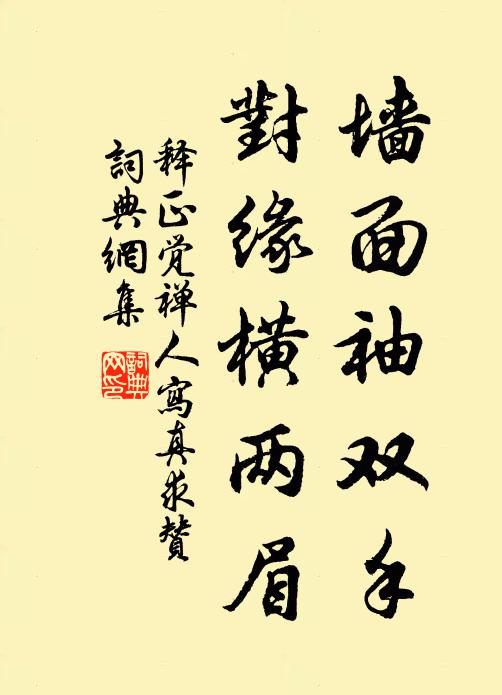 墙面袖双手
對缘横两眉
释正觉禅人寫真求赞
詞典網集
詞典
网印